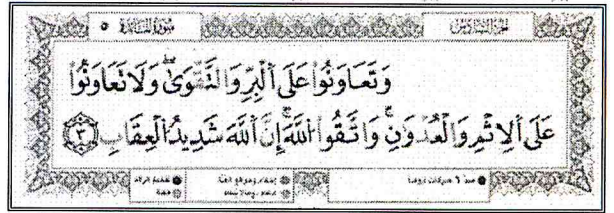 الجزء السادس
سورة المائدة ٥
وَتَعَاوَنُوا عَلَى ٱلْبِرِّ وَالتَّقْوَىٰ ۖ وَلَا تَعَاوَنُوا
عَلَى ٱلْإِثْمِ وَالْعُدْوَٰنِ ۚ وَاتَّقُوا اللَّهَ ۖ إِنَّ اللَّهَ شَدِيدُ الْعِقَابِ ٣